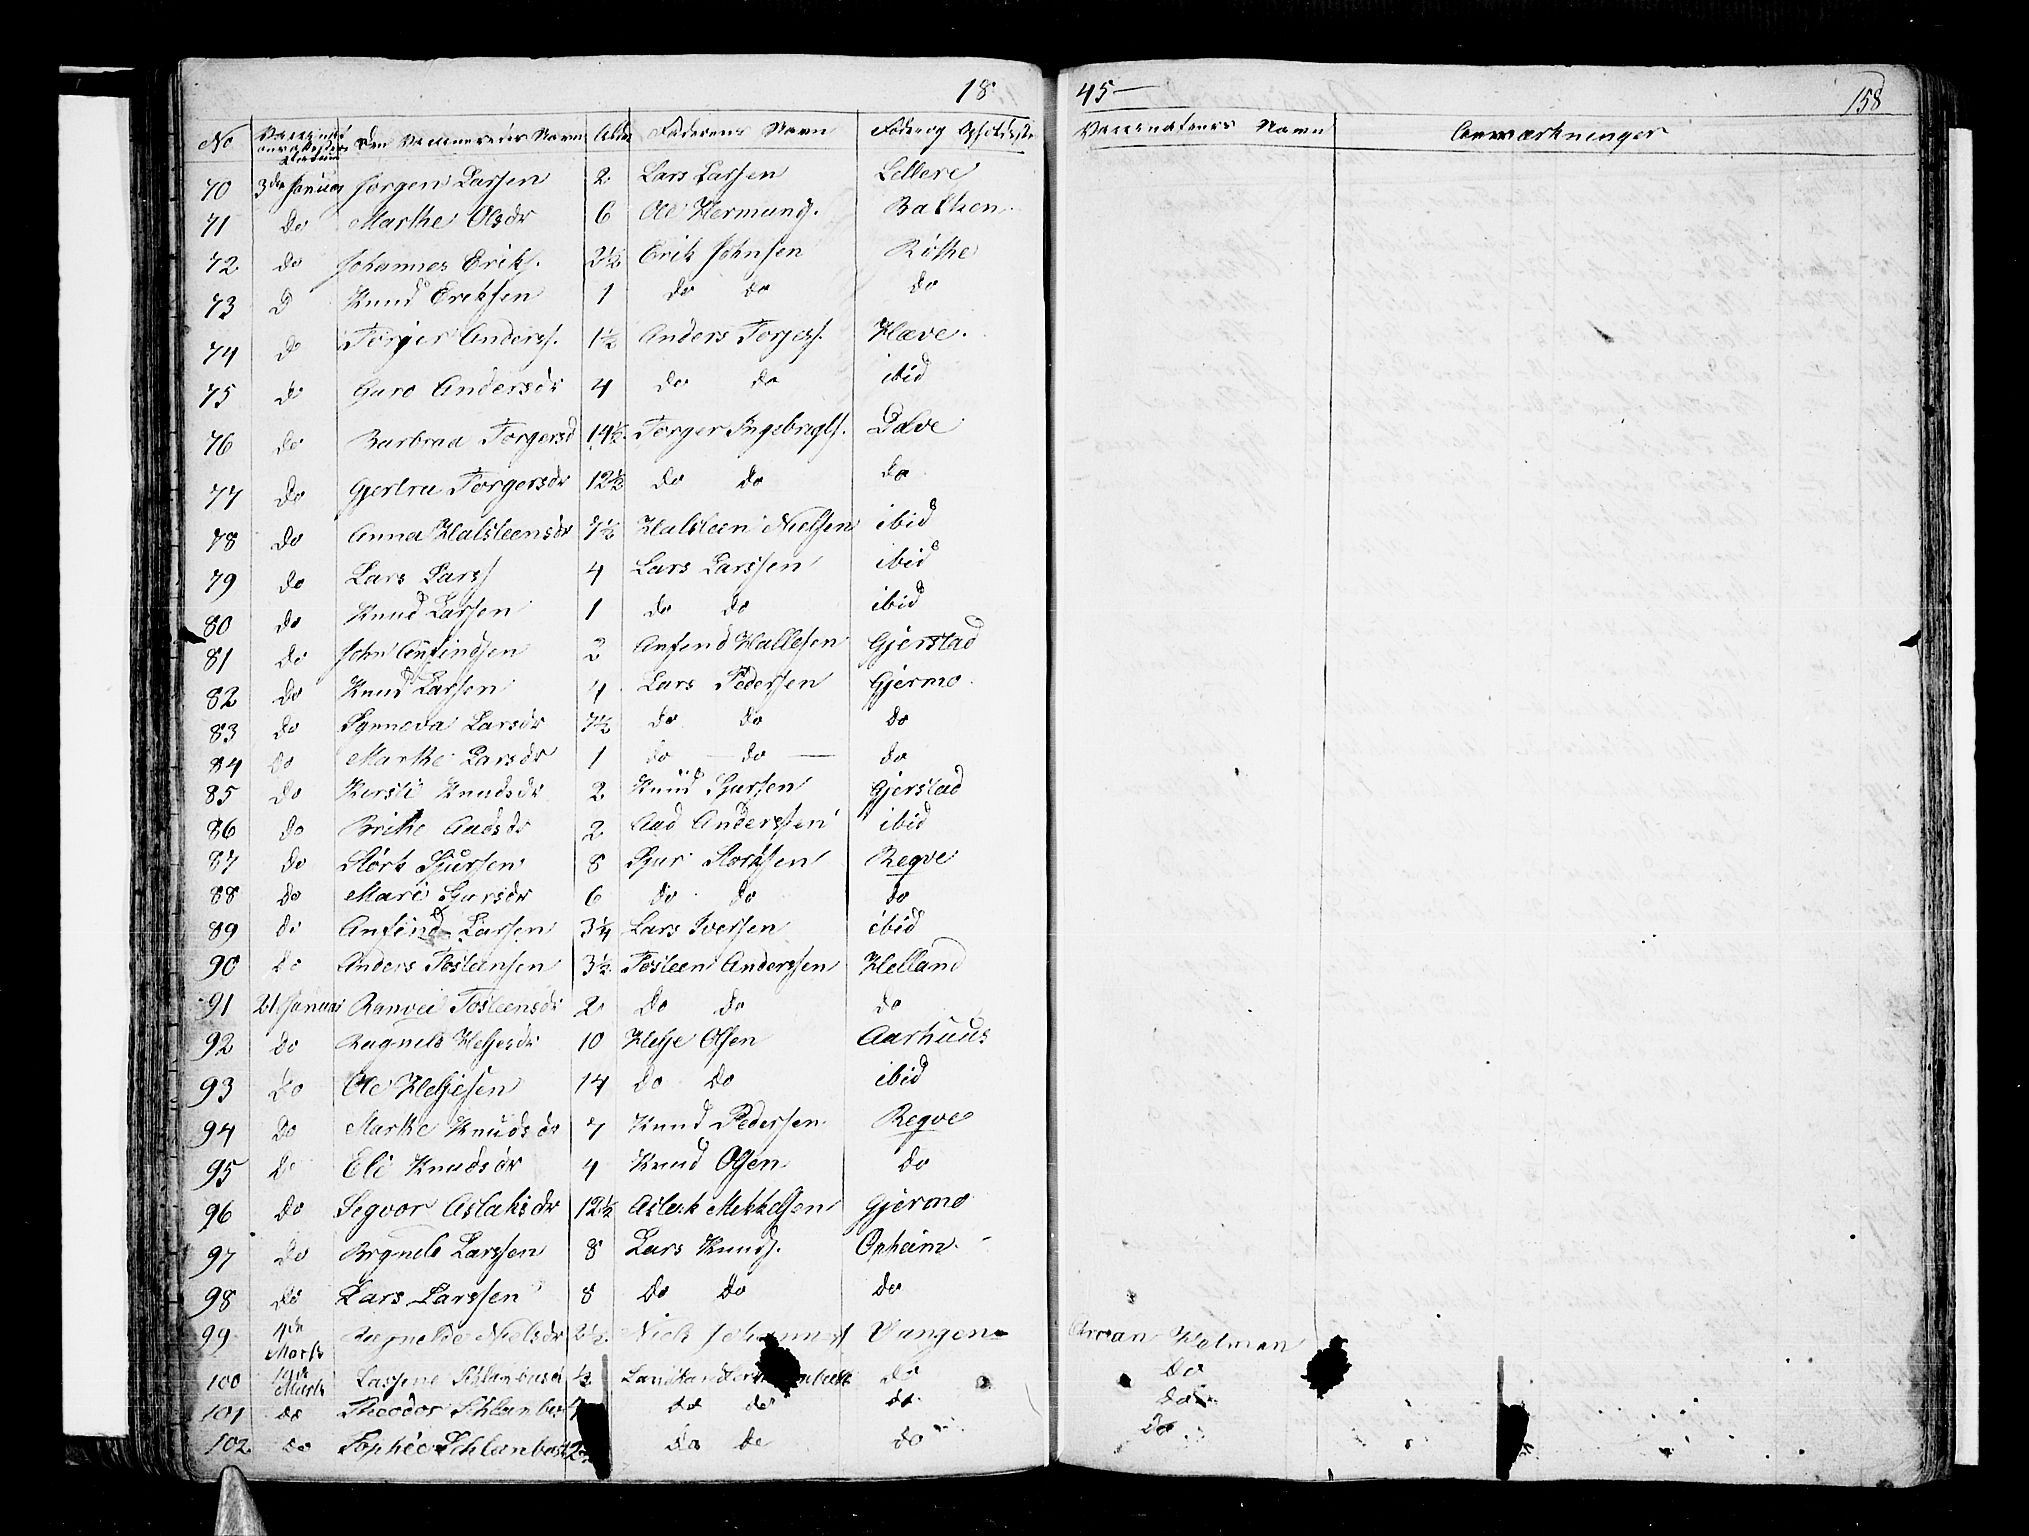 18 45 — 158
No Vaccinat Den Vaccineredes Navn Alder Faderens Navn Føde og Opholdsste Vaccinateurs Navn Anmærkninger
70 3die Januar Jørgen Larssen 2 Lars Larssen
71 Do Marthe Olsdr 6 Ole Hermunds. Bakken
72 do Johannes Eriks. 2½ Erik Johnsen Röthe
73 D Knud Eriksen 1 do do do
74 do Torger Anderss. 1½ Anders Torgers. Hæve.
75 do Guro Andersdr 4 do do ibid
76 do Barbraa Torgersd 14½ Torger Ingebrigts. Dave
77 do Gjertru Torgersdr 12½ do do do
78 do Anna Halsteensdr 7½ Halsteen Nielsen ibid
79 do Lars Larss 4 Lars Larssen ibid
80 do Knud Larsen 1 do do ibid
81 do John Anfindsen 2 Anfend Hallesen Gjerstad
82 do Knud Larsen 4 Lars Pedersen Gjermo.
83 do Synneva Larsdr 7½ do do do
84 do Marthe Larsdr 1 do — do — do
85 do Kersti Knudsdr 2 Knud Sjursen Gjerstad
86 do Brithe Audsdr 2 Aud Anderssen ibid
87 do Størk Sjursen 8 Sjur Størksen Reqve
88 do Mari Sjursdr 6 do do do
89 do Anfind Larsen 3¼ Lars Iversen ibid
90 do Anders Tosteensen 3½ Tosteen Anderssen Helland
91 21 Januar Ranvei Tosteensdr 2 do do do
92 do Ragnele Heljesdr 10 Helje Olsen Aarhuus
93 do Ole Heljesen 14 do do ibid
94 do Marthe Knudsdr 7 Knud Pedersen Reqve
95 do Eli Knudsdr 4 Knud Olsen do
96 do Segvor Aslaksdr 12½ Aslak Mikkelsen Gjermo
97 do Brynele Larssen 8 Lars Knuds. Opheim.
98 do Lars Larssen 8 do do do
99 4de Marts Nielsdr 2½ Niels Johanness Vangen
100 Marts ½ do do
101 do Theodor do do do do
102 do Sophie do do do do